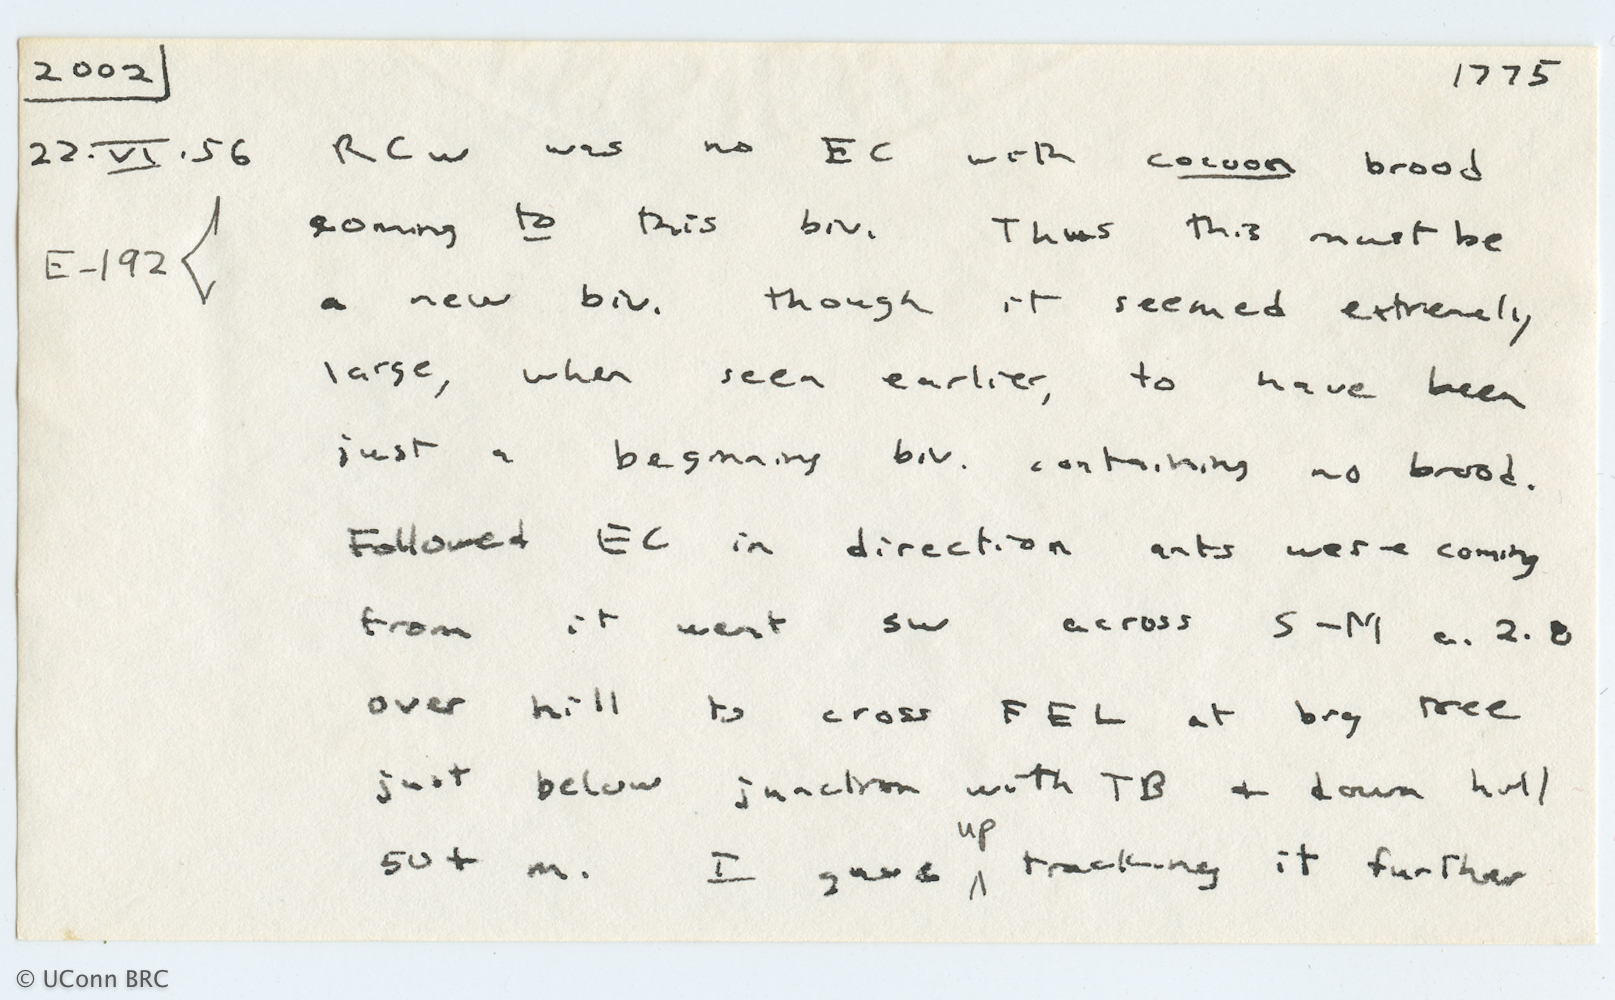 2002 1775
22.VI.56 RCW was no EC with cocoon brood
coming to this biv. Thus this must be
E-192
a new biv. though it seemed extremely
large, when seen earlier, to have been
just a beginning biv. containing no brood.
Followed EC in direction ants were coming
from it went SW across S-M a. 2.8
over hill to cross FEL at big tree
just below junction with TB + down hill
50+ m. I gave up tracking it further
© UConn BRC